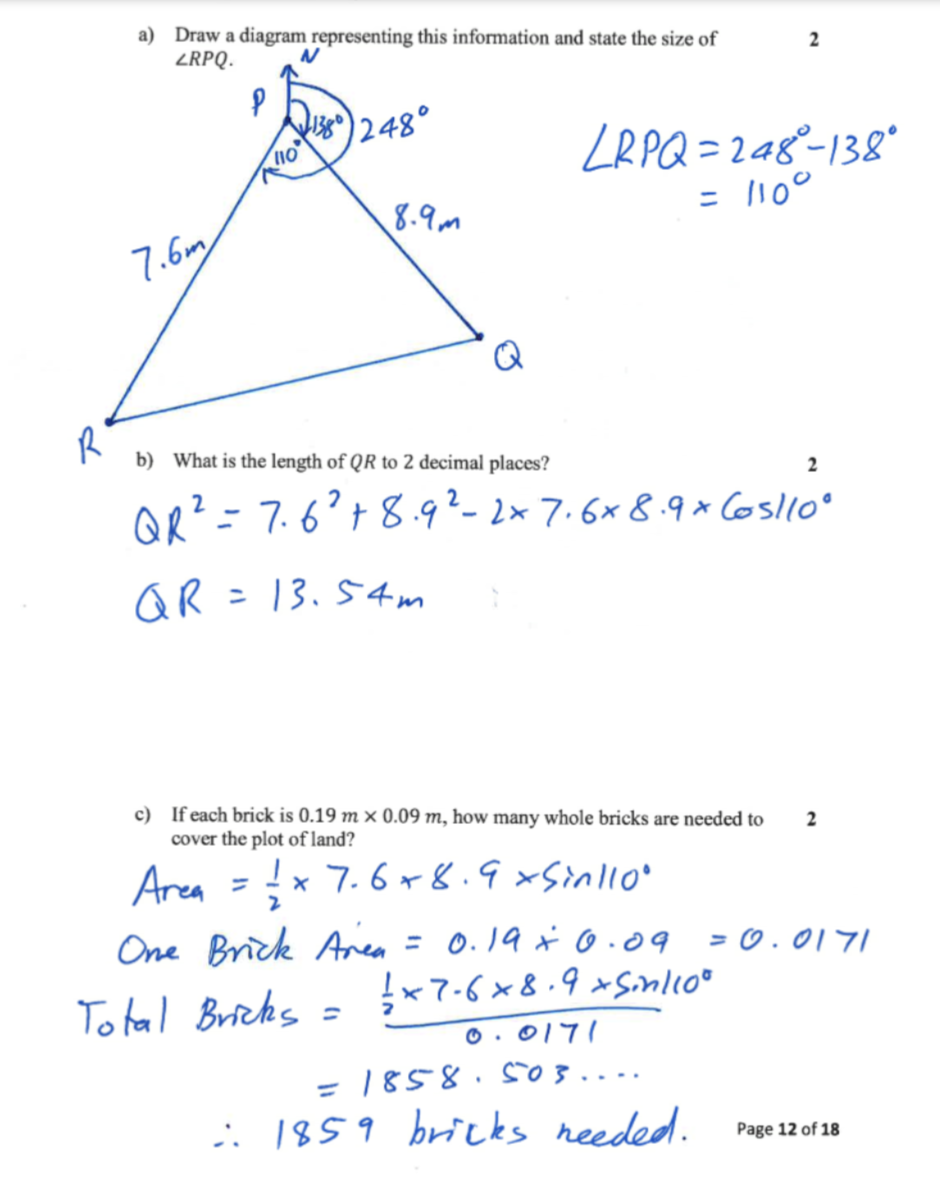 a) Draw a diagram representing this information and state the size of 2
∠RPQ.
N
P
138° 248°
110°
∠RPQ = 248° - 138°
= 110°
8.9m
7.6m
Q
R
b) What is the length of QR to 2 decimal places? 2
QR² = 7.6² + 8.9² - 2 × 7.6 × 8.9 × Cos110°
QR = 13.54m
c) If each brick is 0.19 m × 0.09 m, how many whole bricks are needed to 2
cover the plot of land?
Area = 1/2 × 7.6 × 8.9 × Sin110°
One Brick Area = 0.19 × 0.09 = 0.0171
Total Bricks = 1/2 × 7.6 × 8.9 × Sin110°
0.0171
= 1858.503....
∴ 1859 bricks needed.
Page 12 of 18